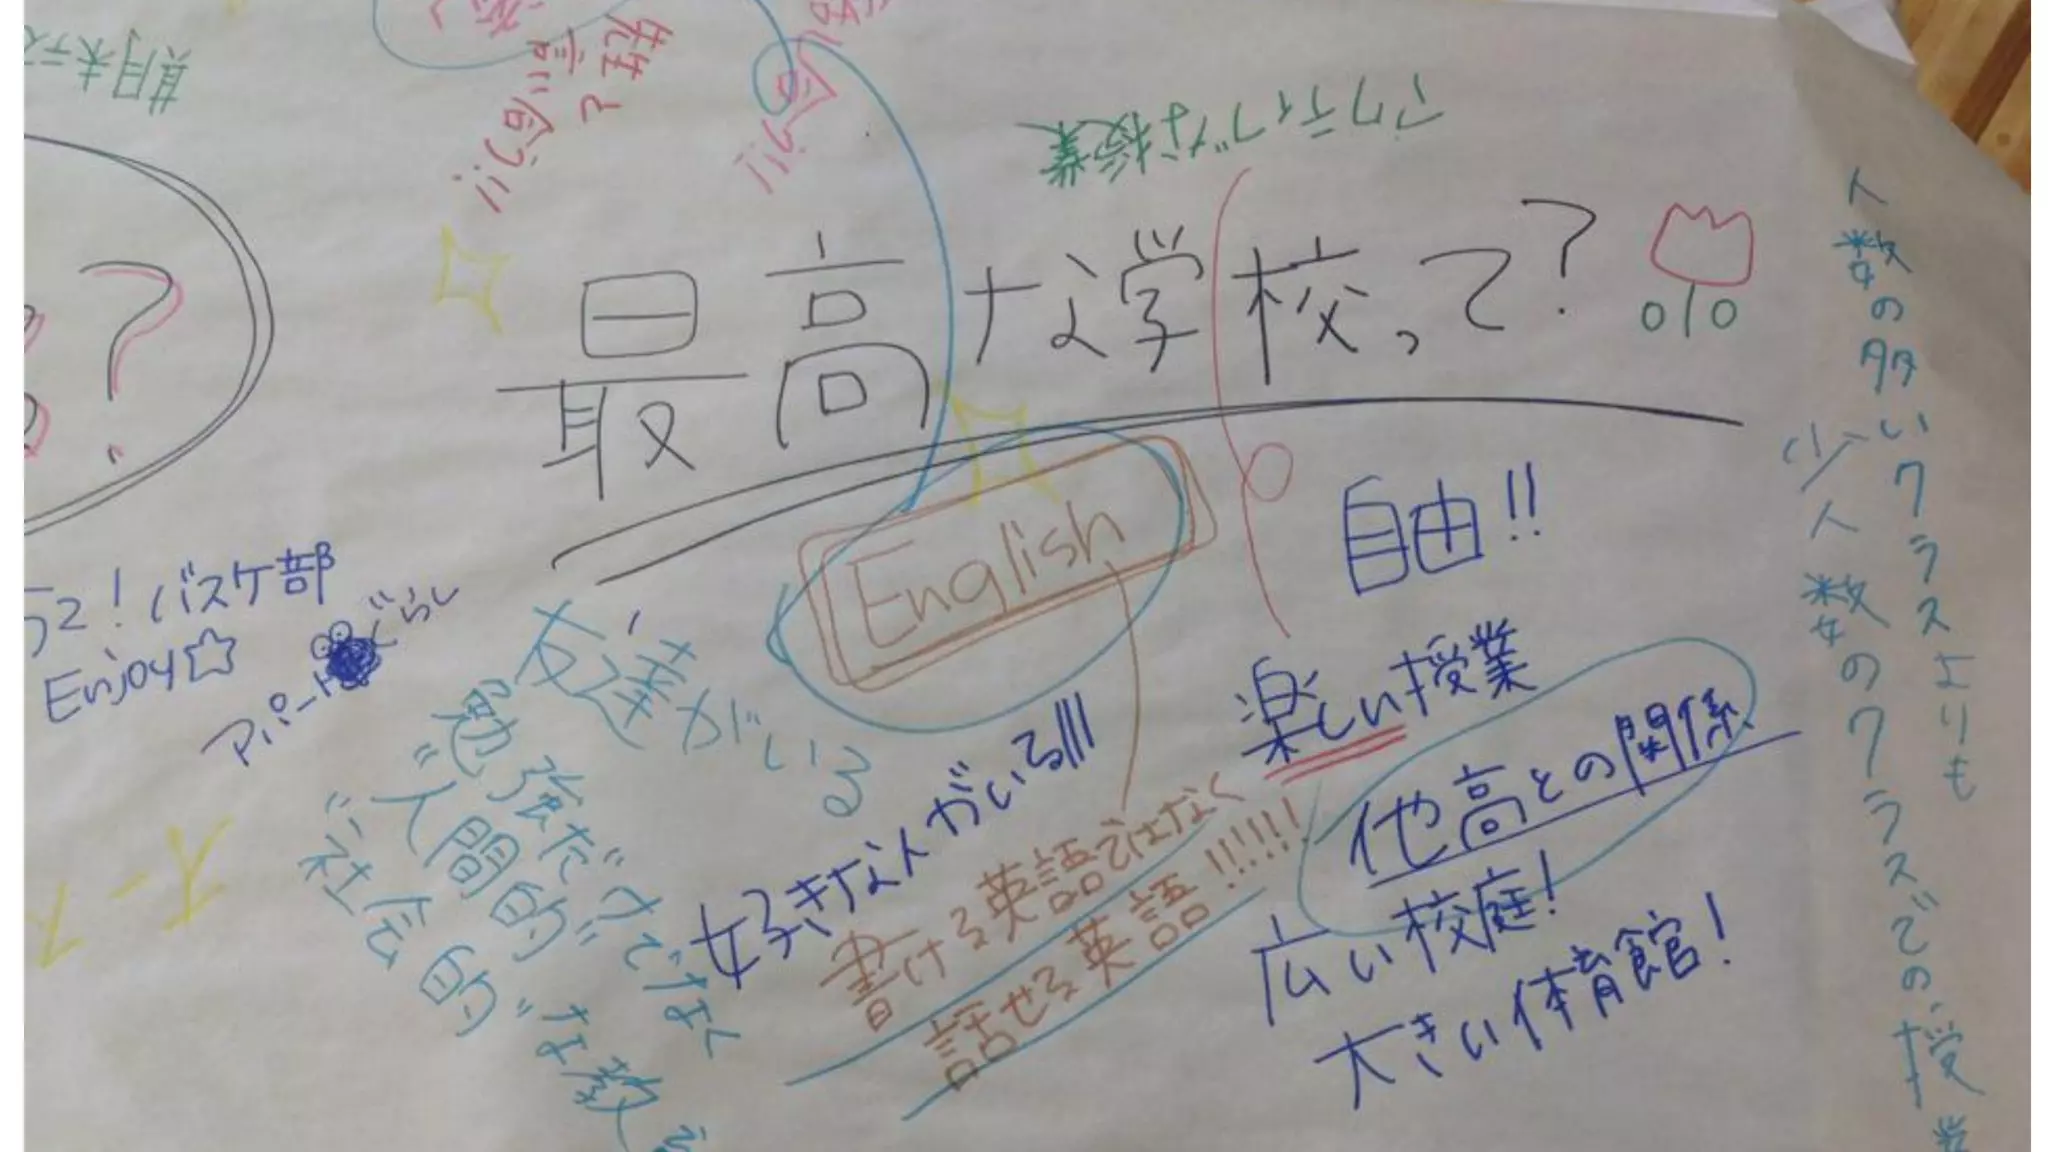 期末テス
先生と
言い合う!!
アクティブな授業
最高な学校って?
?
English
自由!!
人数の多いクラスよりも
少人数のクラスでの授業
う2!バスケ部
Enjoy☆
アパートぐらし
友達がいる
勉強だけでなく
"人間的"
"社会的"な教
好きな人がいる!!!
書ける英語ではなく
話せる英語!!!!!!
楽しい授業
他高との関係
広い校庭!
大きい体育館!